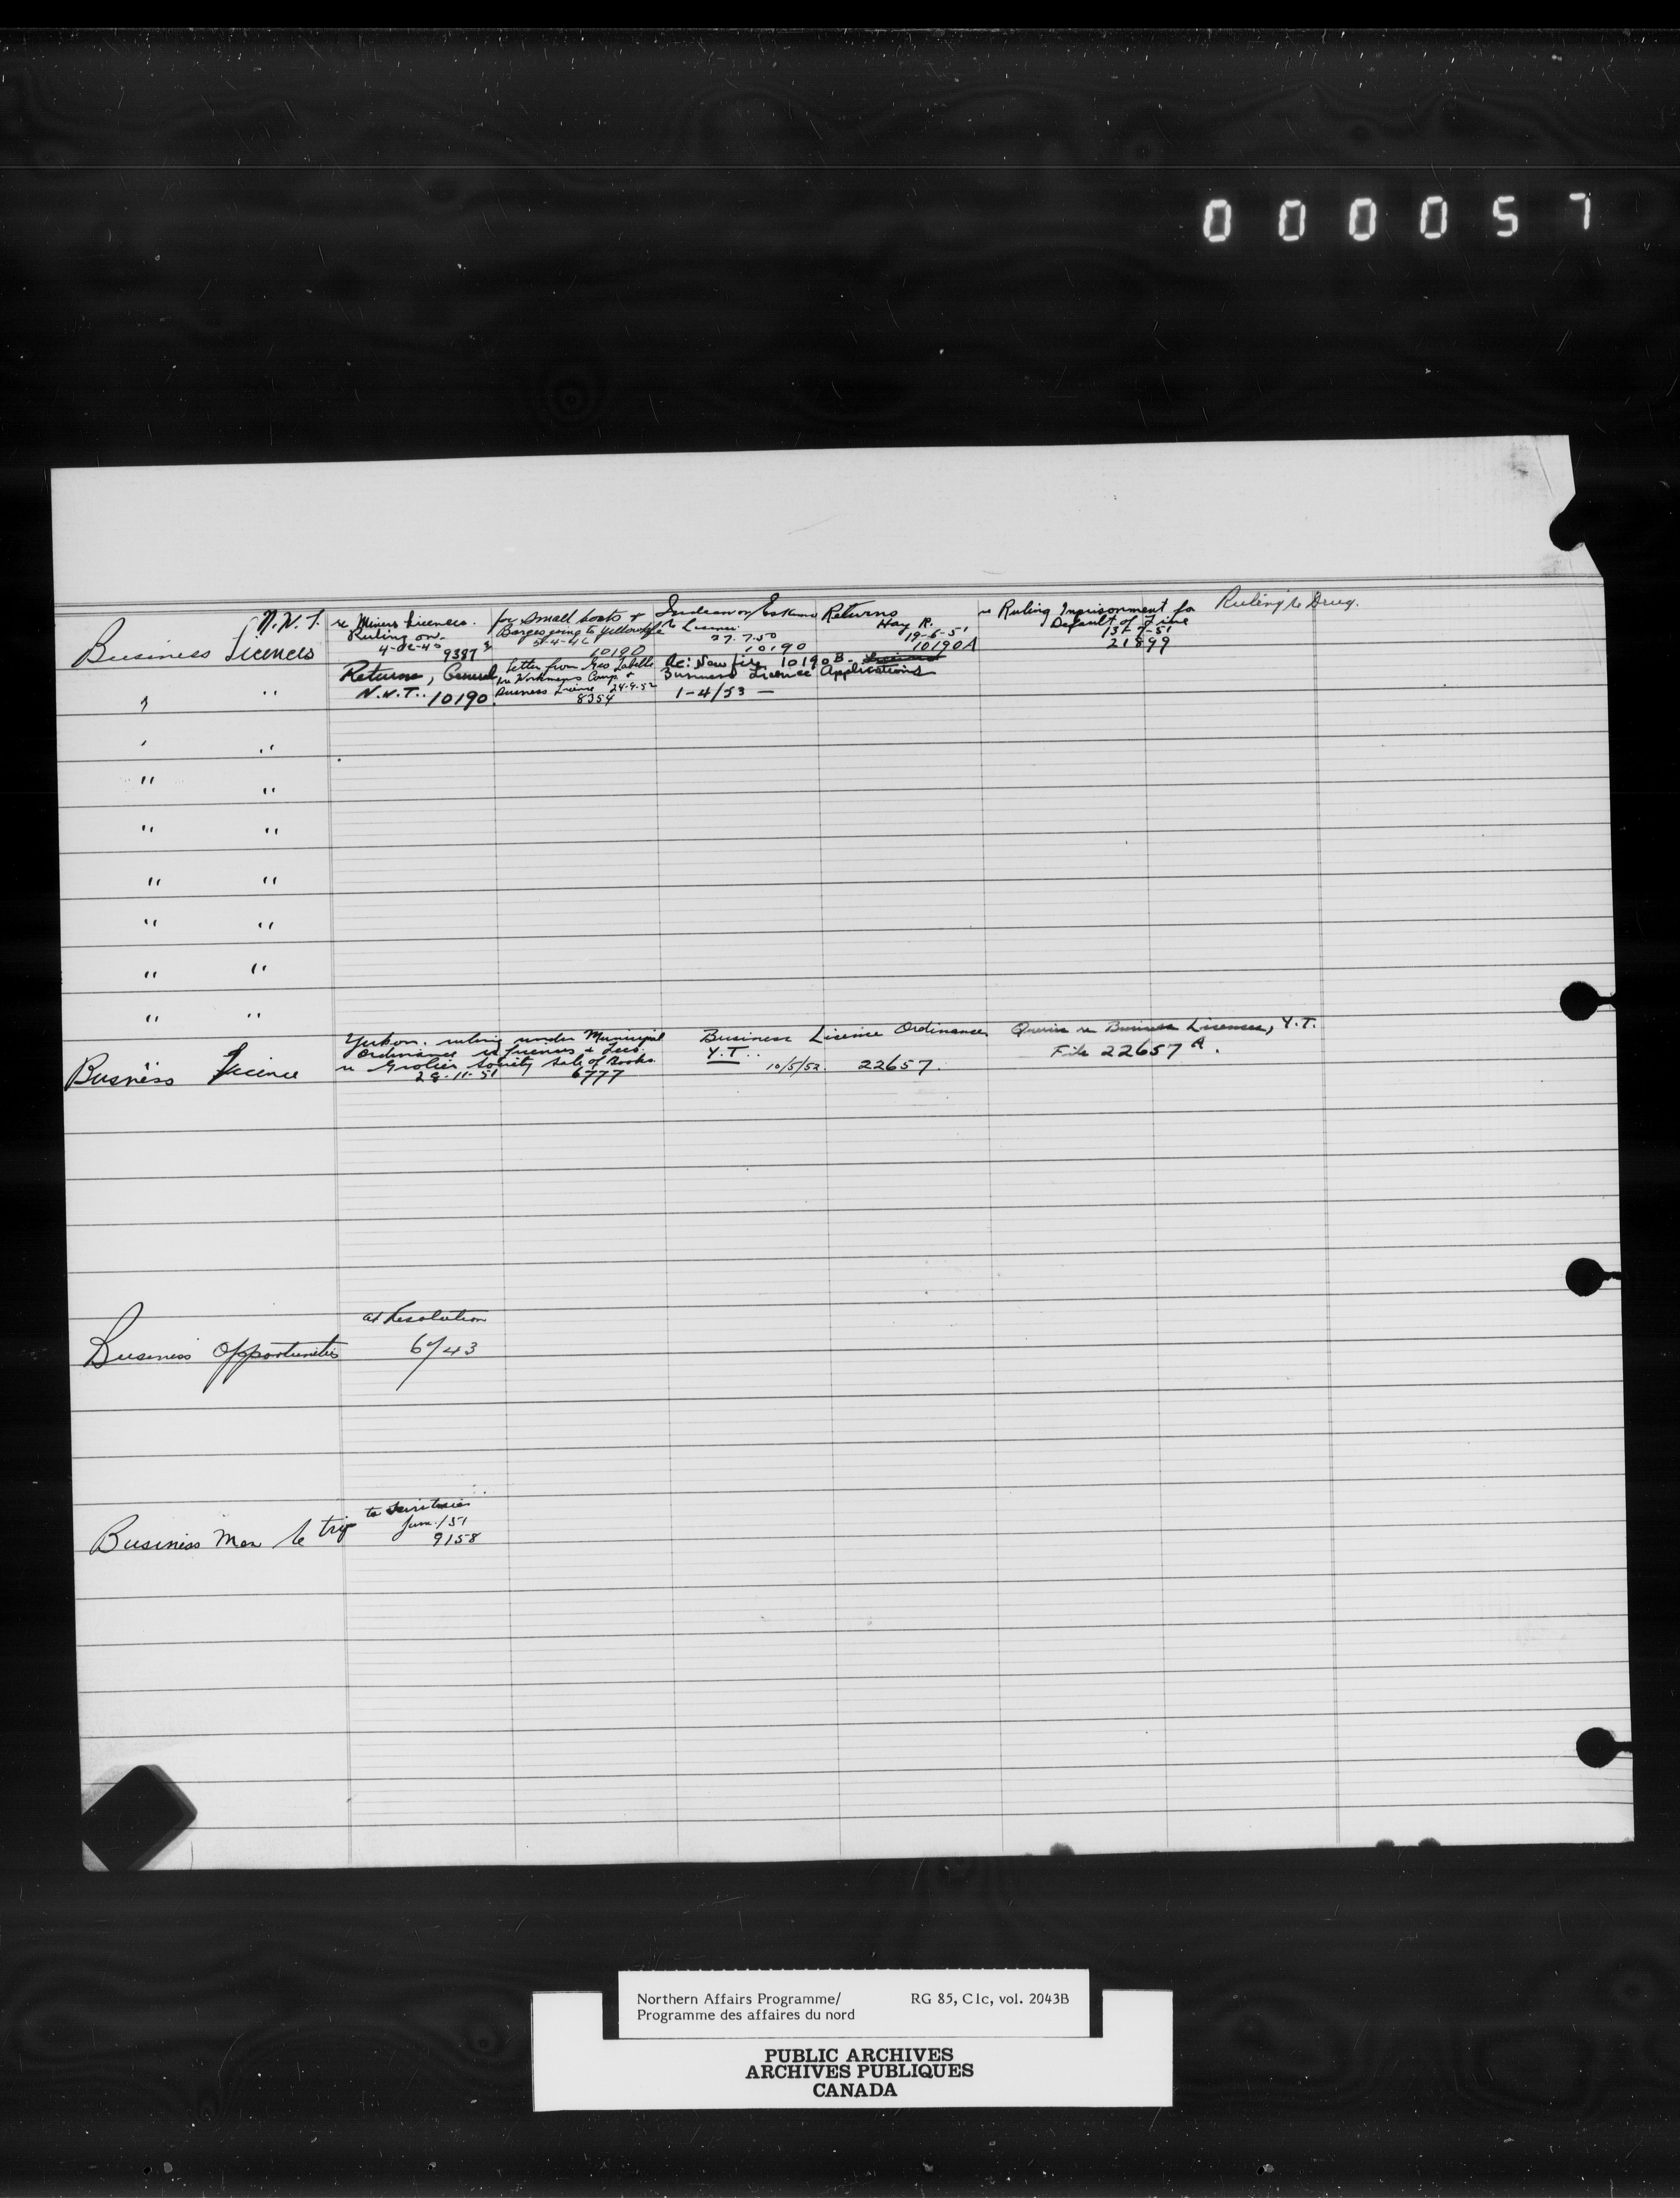 000057
N.W.T.
Business Licences
re Miners Licences.
Ruling on
9387
for Small boats +
Barges going to Yellowknife
10190
Indian or Eskimo
re Licence
27.7.50
10190
Returns
Hay R.
19-6-51
10190A
re Ruling Imprisonment for
Default of Fine
13-7-51
21899
Ruling re Drug.
" "
Returns, General
N.W.T. 10190
Letter from Geo Labelle
re Workmens Comp +
Business Licence 24-9-52
8354
Re: New file 10190B.
Business Licence Applications
1-4/53 —
" "
" "
" "
" "
" "
" "
" "
Business Licence
Yukon. ruling under Municipal
Ordinance re Licences + Fees.
re Grolier Society Sale of Books
28-11-51 6777
Business Licence Ordinance
Y.T.
10/5/52. 22657.
Queries re Business Licenses, Y.T.
File 22657 A.
Business Opportunities
at Resolution
6743
Business Men re trip
to Territories
June/51
9158
Northern Affairs Programme/ RG 85, C1c, vol. 2043B
Programme des affaires du nord
PUBLIC ARCHIVES
ARCHIVES PUBLIQUES
CANADA